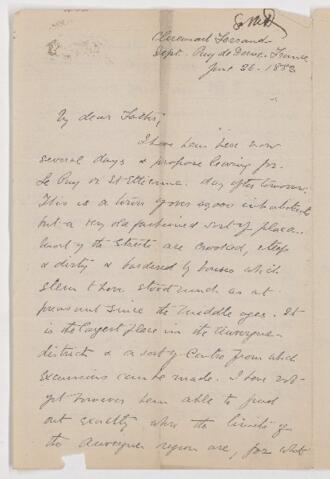 Clermont Ferrand
Dept. Puy de Dome. France
June 26 - 1883
My dear Father,
I have been here now
several days & propose leaving for
Le Puy via St Etienne day after tomorrow.
This is a town of over 40,000 inhabitants
but a very old fashioned sort of place.
Most of the streets are crooked, steep
& dirty & bordered by houses which
seem to have stood much as at
present since the Middle ages. It
is the largest place in the Auvergne
district & a sort of Centre from which
excursions can be made. I have not
yet however been able to find
out exactly where the limits of
the Auvergne region are, for what